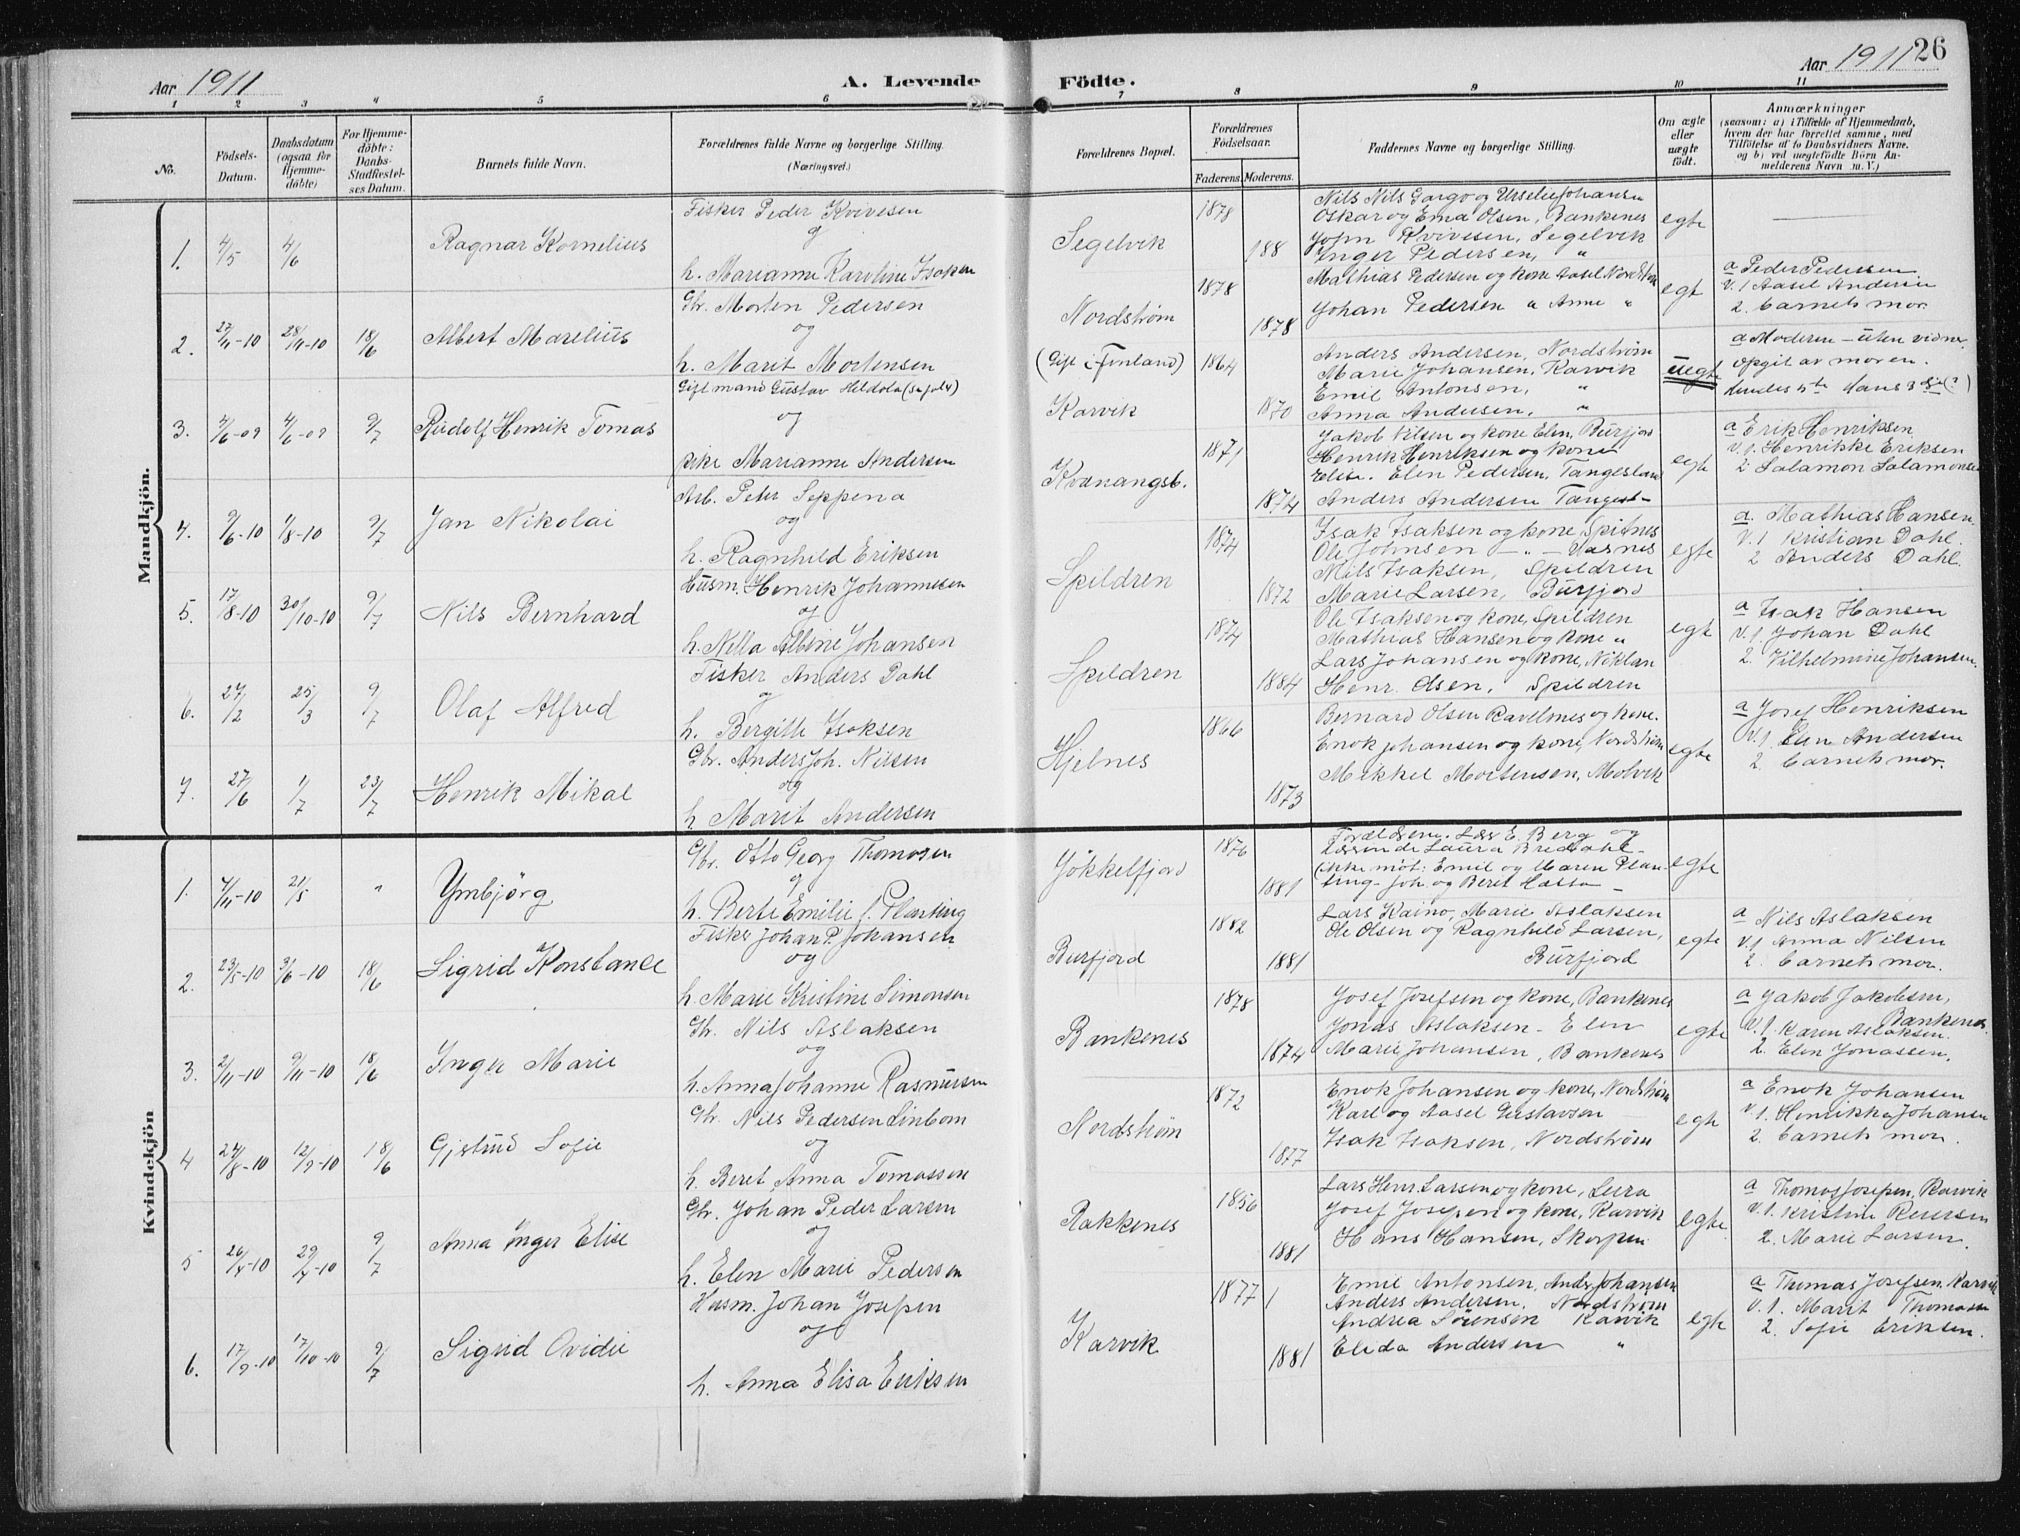 Aar 1911
A. Levende
Födte.
Aar 1911
26
1 2 3 4 5 6 7 8 9 10 11
No.
Födsels-
Datum.
Daabsdatum
(ogsaa for
Hjemme-
döbte)
For Hjemme-
döbte:
Daabs-
Stadfæstel-
ses Datum.
Barnets fulde Navn.
Forældrenes fulde Navne og borgerlige Stilling.
(Næringsvei.)
Forældrenes Bopæl.
Forældrenes
Födselsaar.
Faderens. Moderens.
Faddernes Navne og borgerlige Stilling.
Om ægte
eller
uægte
født.
Anmærkninger
(saasom: a) i Tilfælde af Hjemmedaab,
hvem der har forrettet samme, med
Tilföielse af to Daabsvidners Navne.
og b) ved uægtefödte Börn An-
melderens Navn m. V.)
Mandkjön.
1. 4/5 4/6 Ragnar Kornelius
Fisker Peder Kvivesen
og
h. Marianne Karoline Isaksen
Segelvik 1878 188
Nils Nils Gargo og Urselie Johansen
Oskar og Ema Olsen, Bankenes
John Kvivesen, Segelvik
Inger Pedersen, "
egte
2. 27/11-10 28/11-10 18/6 Albert Marelius
Gbr. Morten Pedersen
og
h. Marit Mortensen
Nordstrøm 1878 1878
Mathias Pedersen og kone Aasel Nordstrøm
Johan Pedersen " Anne "
egt
a Peder Pedersen.
v. 1 Aasel Andersen
2. barnets mor.
3. 4/6-09 4/6-09 9/7 Rudolf Henrik Tomas
Gift mand Gustav Heldola
og
pike Marianne Andersen
(Gift i Finland)
Karvik 1864 1870
Anders Andersen, Nordstrøm
Marie Johansen, Karvik
Emil Antonsen, "
Anna Andersen, "
uegte
a Moderen - uten vidner.
opgit av moren.
hendes 5te hans 3dje (?)
4. 9/6-10 1/8-10 9/7 Jan Nikolai
Arb. Peter Seppena
og
h. Ragnhild Eriksen
Kvænangsb. 1871 1874
Jakob Nilsen og kone Elen, Burfjord
Henrik Henriksen og kone
Elise. Elen Pedersen, Tangesland
Anders Andersen Tangesl-
egt
a Erik Henriksen
v. 1. Henrikke Eriksen
2. Salamon Salamonsen
5. 17/8-10 30/10-10 9/7 Nils Bernhard
Husm. Henrik Johannesen
og
h. Nella Albine Johansen
Spildren 1874 1872
Isak Isaksen og kone, Spitnes
Ole Johnsen - " - Sasnes
Nils Isaksen, Spildren
Marie Larsen, Burfjord
egte
a. Mathias Hansen
v. 1 Kristian Dahl.
2 Anders Dahl.
6. 27/2 25/3 9/7 Olaf Alfred
Fisker Anders Dahl
og
h. Bergitte Isaksen
Spildren 1874 1884
Ole Isaksen og kone, Spildren
Mathias Hansen og kone "
Lars Johansen og kone, Niklan
Henr. Olsen, Spildren
egte
a Isak Hansen
v. 1 Johan Dahl
2. Vilhelmine Johansen.
7. 27/6 1/7 23/7 Henrik Mikal
Gbr. Anders Joh. Nilsen
og
h. Marit Andersen
Hjelnes 1866 1873
Bernard Olsen Ravelnes og kone.
Enok Johansen og kone, Nordstrøm
Mikkel Mortensen, Molvik
egte
a Josef Henriksen
v. 1 Elen Andersen
2. barnets mor.
Kvindekjön
1. 7/11-10 21/5 " Ymbjörg
Gbr. Otto Georg Thomasen
og
h. Berte Emilie f. Planting
Jökkelfjord 1876 1881
Forældrene. Lær E. Berg og
Lærerinde Laura Bredahl-
(ikke møt: Emil og Maren Plan-
ting - Joh. og Beret Hasso -
egte
2. 23/5-10 3/6-10 18/6 Sigrid Konstance
Fisker Johan P. Johansen
og
h. Marie Kristine Simonsen
Burfjord 1882 1881
Lars Kaino, Marie Aslaksen
Ole Olsen og Ragnhild Larsen,
Burfjord
egte
a Nils Aslaksen
v. 1 Anna Nilsen
2. barnets mor.
3. 2/11-10 9/11-10 18/6 Inger Marie
Gb. Nils Aslaksen
og
h. Anna Johanne Rasmusen
Bankenes 1878 1874
Josef Josefsen og kone, Bankenes
Jonas Aslaksen - Elen
Marie Johansen, Bankenes
egte
a Jakob Jakobsen,
Bankenes.
v. 1. Karen Aslaksen.
2. Elen Jonassen.
4 24/8-10 12/9-10 18/6 Gjertrud Sofie
Gb. Nils Pedersen Linbom
og
h. Beret Anna Tomassen
Nordstrøm 1872 1877
Enok Johansen og kone, Nordstrøm
Karl og Aasel Gustavsen
Isak Isaksen, Nordstrøm
egte
a Enok Johansen
v. 1. Henrikke Johansen
2. barnets mor.
5 26/4-10 29/4-10 9/7 Anna Inger Elise
Gb. Johan Peder Larsen
og
h. Elen Marie Pedersen
Rakkenes 1856 1881
Lars Henr. Larsen og kone, Leira
Josef Josepen og kone, Karvik
Hans Hansen, Skorpen
egte
a Thomas Josepen, Karvik
v. 1. Kristine Reiersen
2. Marie Larsen.
6. 17/9-10 17/10-10 9/7 Sigrid Ovidie
Husm. Johan Josepen
og
h. Anna Elisa Eriksen
Karvik 1877 1881
Emil Antonsen, Andr. Johansen
Anders Andersen. Nordstrøm
Andrea Sørensen Karvik
Elida Andersen "
egte
a Thomas Josefsen, Karvik
v. 1. Marit Thomassen
2. Sofie Eriksen.